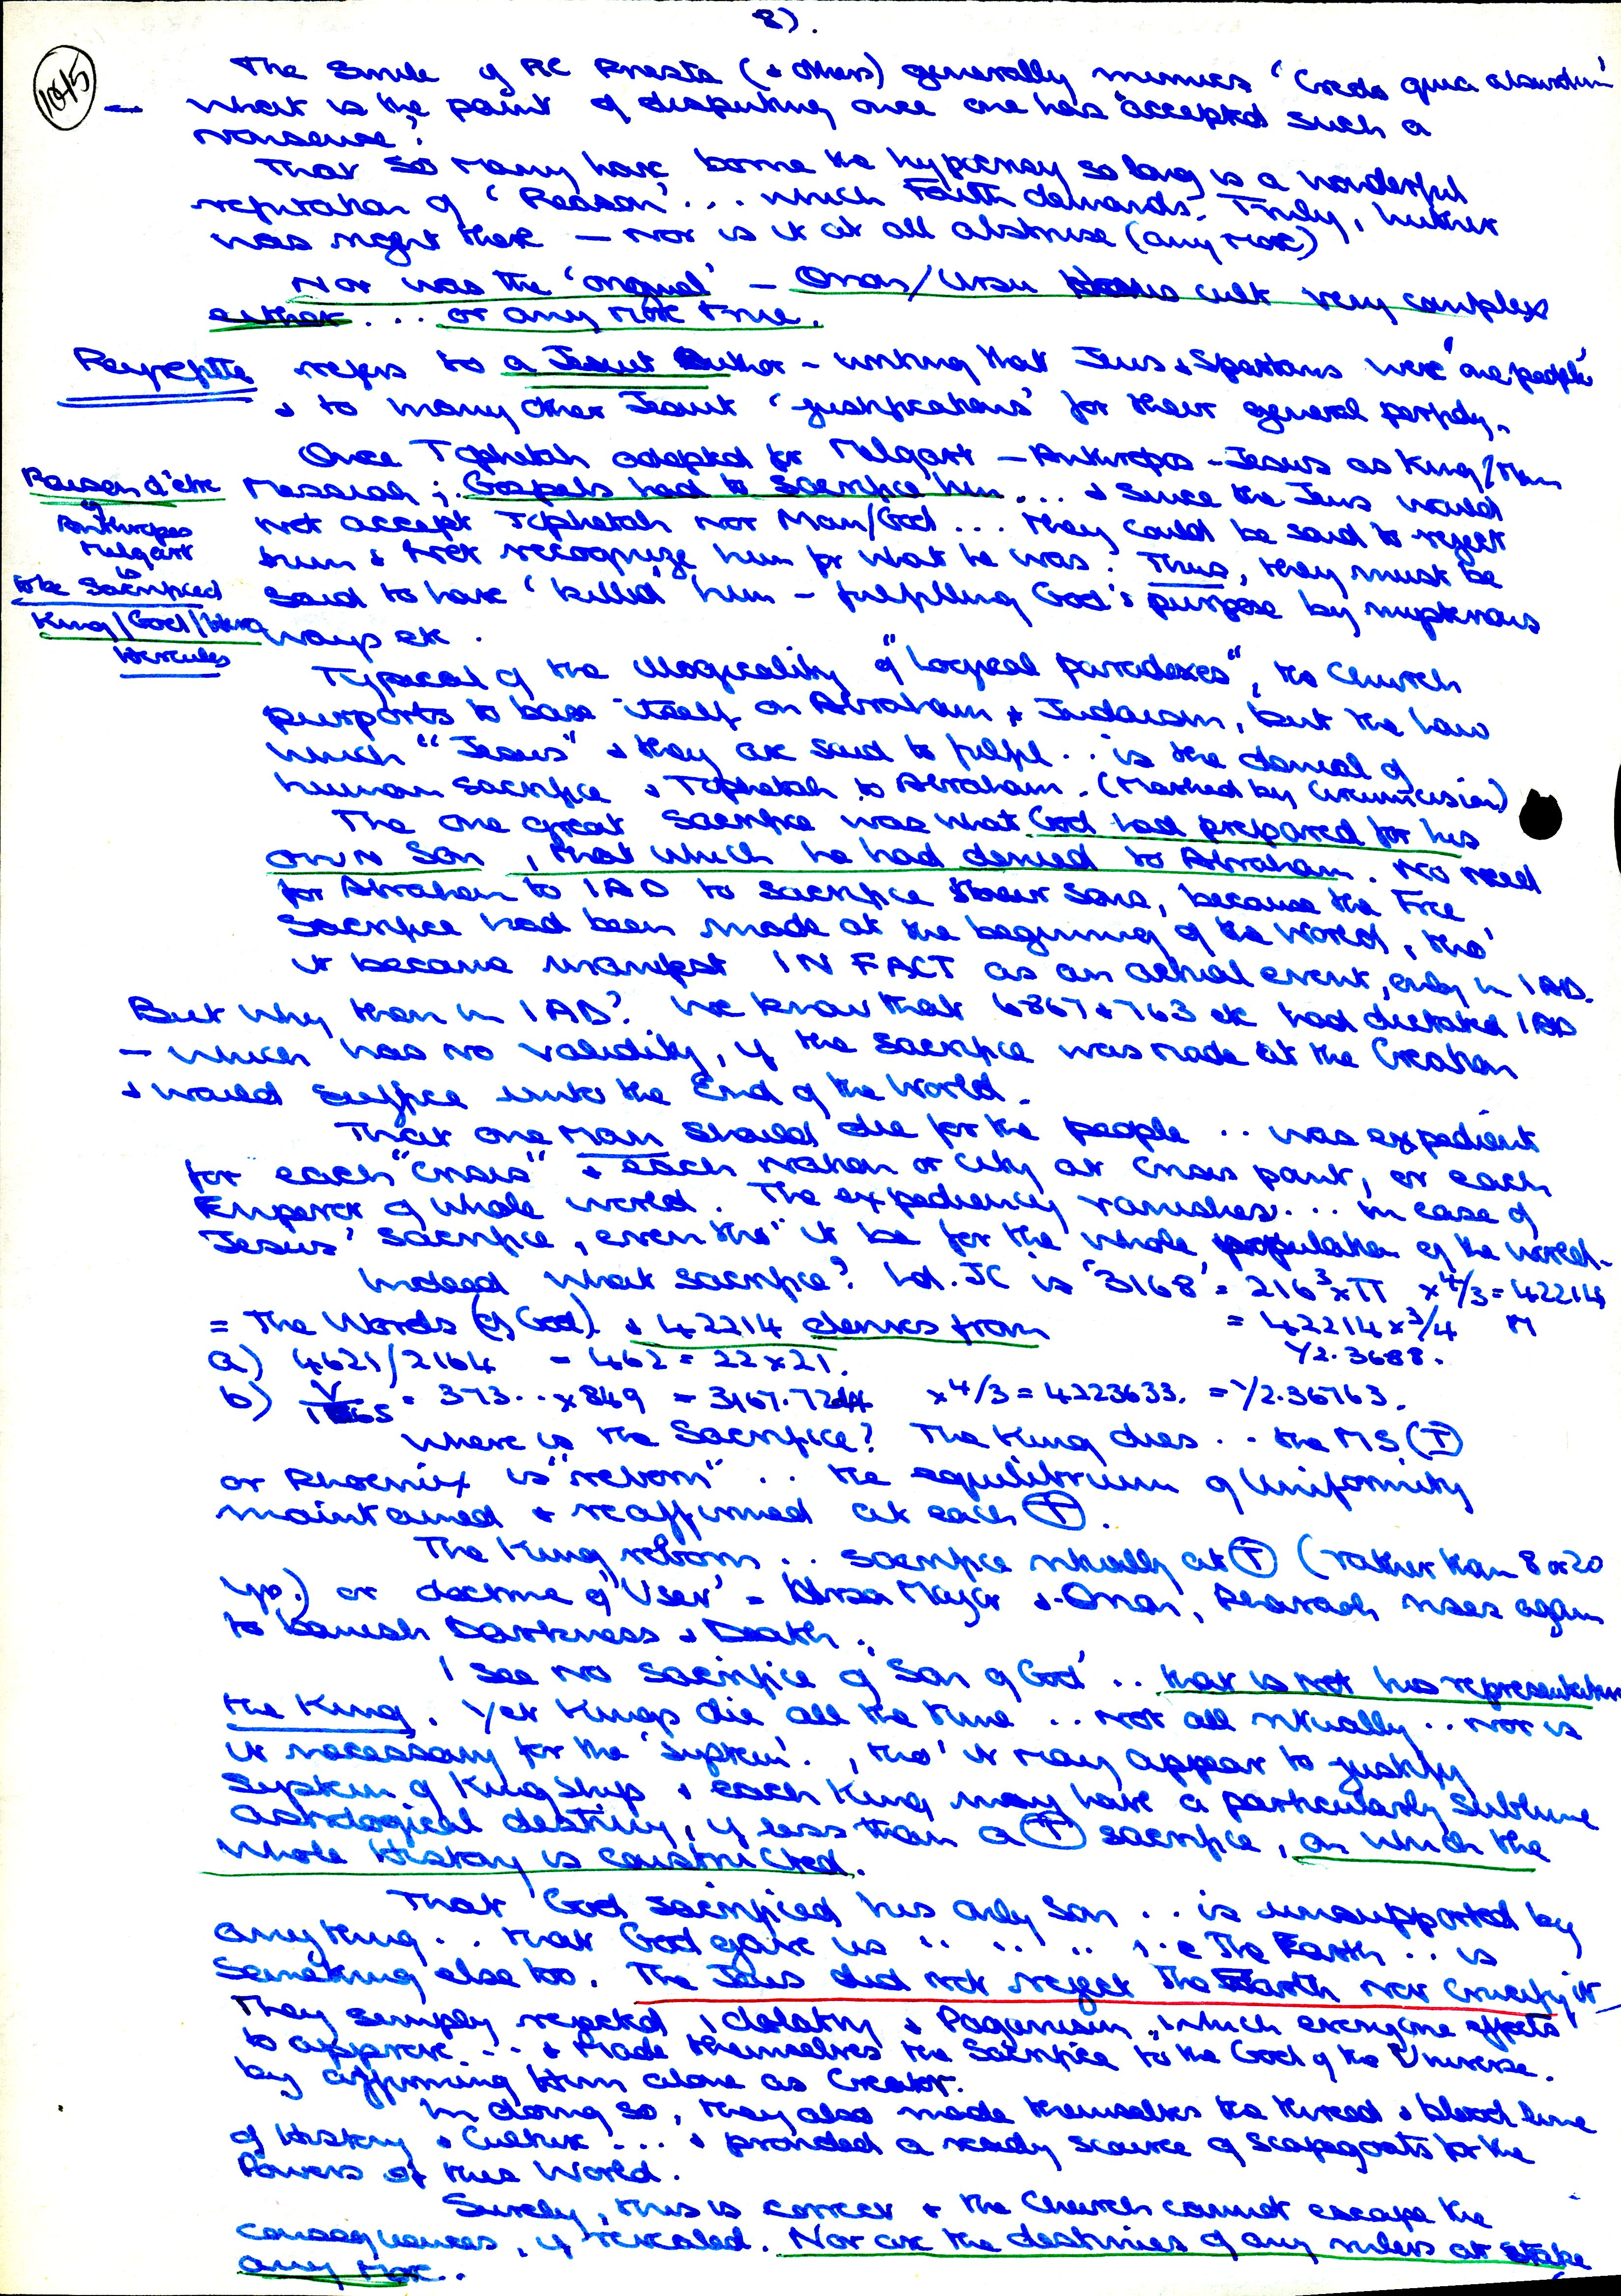 8).
1045
The Smile of RC Priests (& others) generally mimics 'Credo quia absurdum'
— What is the point of disputing once one has accepted such a
nonsense?
That so many have borne the hypocrisy so long is a wonderful
refutation of 'Reason'... which Faith demands. Truly, Luther
was right there — nor is it at all abstruse (any more)
Nor was the 'original' — Orion/Ursa cult very complex
either... or any more true.
Peyrefitte refers to a Jesuit Author - writing that Jews & Spartans were 'one people'
& to many other Jesuit 'justifications' for their general perfidy.
Once Tophetah adopted for Melqart - Anthropos - Jesus as King/Man
Raison d'etre of Anthropos Melqart is to be Sacrificed King/God/Hero Hercules
Messiah; Gospels had to sacrifice him... & since the Jews would
not accept Tophetah nor Man/God... they could be said to reject
him & not recognize him for what he was. Thus, they must be
said to have 'killed' him - fulfilling God's purpose by mysterious
ways etc.
Typical of the illogicality of "logical paradoxes", the Church
purports to base itself on Abraham & Judaism, but the Law
which "Jesus" & they are said to fulfil.. is the denial of
human sacrifice & Tophetah to Abraham. (Marked by Circumcision)
The one great Sacrifice was what God had prepared for his
own Son, that which he had denied to Abraham. No need
for Abraham to 1AD to sacrifice their sons, because the Free
Sacrifice had been made at the beginning of the World, tho'
it became manifest IN FACT as an actual event, only in 1AD.
But why then in 1AD? We know that 6867 & 763 etc had dictated 1AD
- which has no validity, if the sacrifice was made at the Creation
& would suffice unto the End of the World.
That one Man should die for the people .. was expedient
for each "Crisis" & each nation or city at crisis point, or each
Emperor of whole world. The expediency vanishes... in case of
Jesus' sacrifice, even tho' it be for the whole population of the world.
Indeed what sacrifice? Ld. JC is '3168' = 216³ x π x 4/3 = 42214
= The Words (of God) & 42214 derives from = 42214 x 3/4 M
a) 4621/2164 = 462 = 22 x 21. Y2.3688.
b) = 373.. x 849 = 3167.72 x 4/3 = 4223633. = Y2.36763.
Where is the Sacrifice? The King dies .. the MS (T)
or Phoenix is "reborn" .. the equilibrium of Uniformity
maintained & reaffirmed at each (T).
The King reborn .. sacrifice ritually at (T) (rather than 8 or 20
yrs.) or doctrine of 'User' = Ursa Major & Orion, Pharaoh rises again
to banish Darkness & Death.
I see no sacrifice of 'Son of God' .. that is not his representative
the King. Yet Kings die all the time .. not all ritually .. nor is
it necessary for the 'System'., tho' it may appear to justify
System of Kingship & each King may have a particularly sublime
astrological destiny, if less than a (T) sacrifice, on which the
whole History is constructed.
That God sacrificed his only Son .. is unsupported by
anything .. that God gave us " " " " i.e The Earth .. is
something else too. The Jews did not reject the Earth nor Crucify it -
They simply rejected idolatry & Paganism, which everyone affects
to approve ... & made themselves the Sacrifice to the God of the Universe.
by affirming Him alone as Creator.
In doing so, they also made themselves the thread & blood line
of History & Culture ... & provided a ready source of scapegoats for the
Powers of this World.
Surely, this is correct & the Church cannot escape the
consequences, if revealed. Nor are the destinies of any rulers at stake
any more..